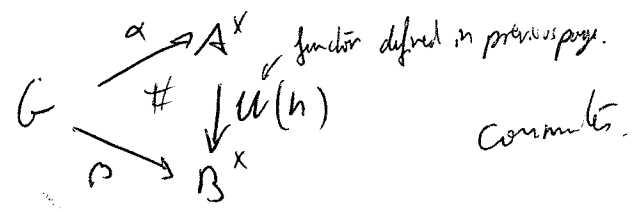 α A^× functor defined in previous page.
G # ↓ U(h)
β B^× commutes.